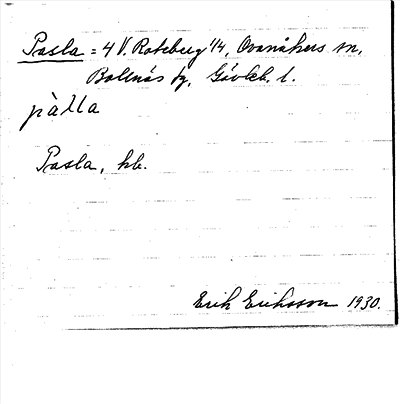 Pasla = 4 V. Roteberg 1/4, Ovanåkers sn,
Bollnäs tg, Gävleb. l.
pàlla
Pasla, kb.
Erik Eriksson 1930.